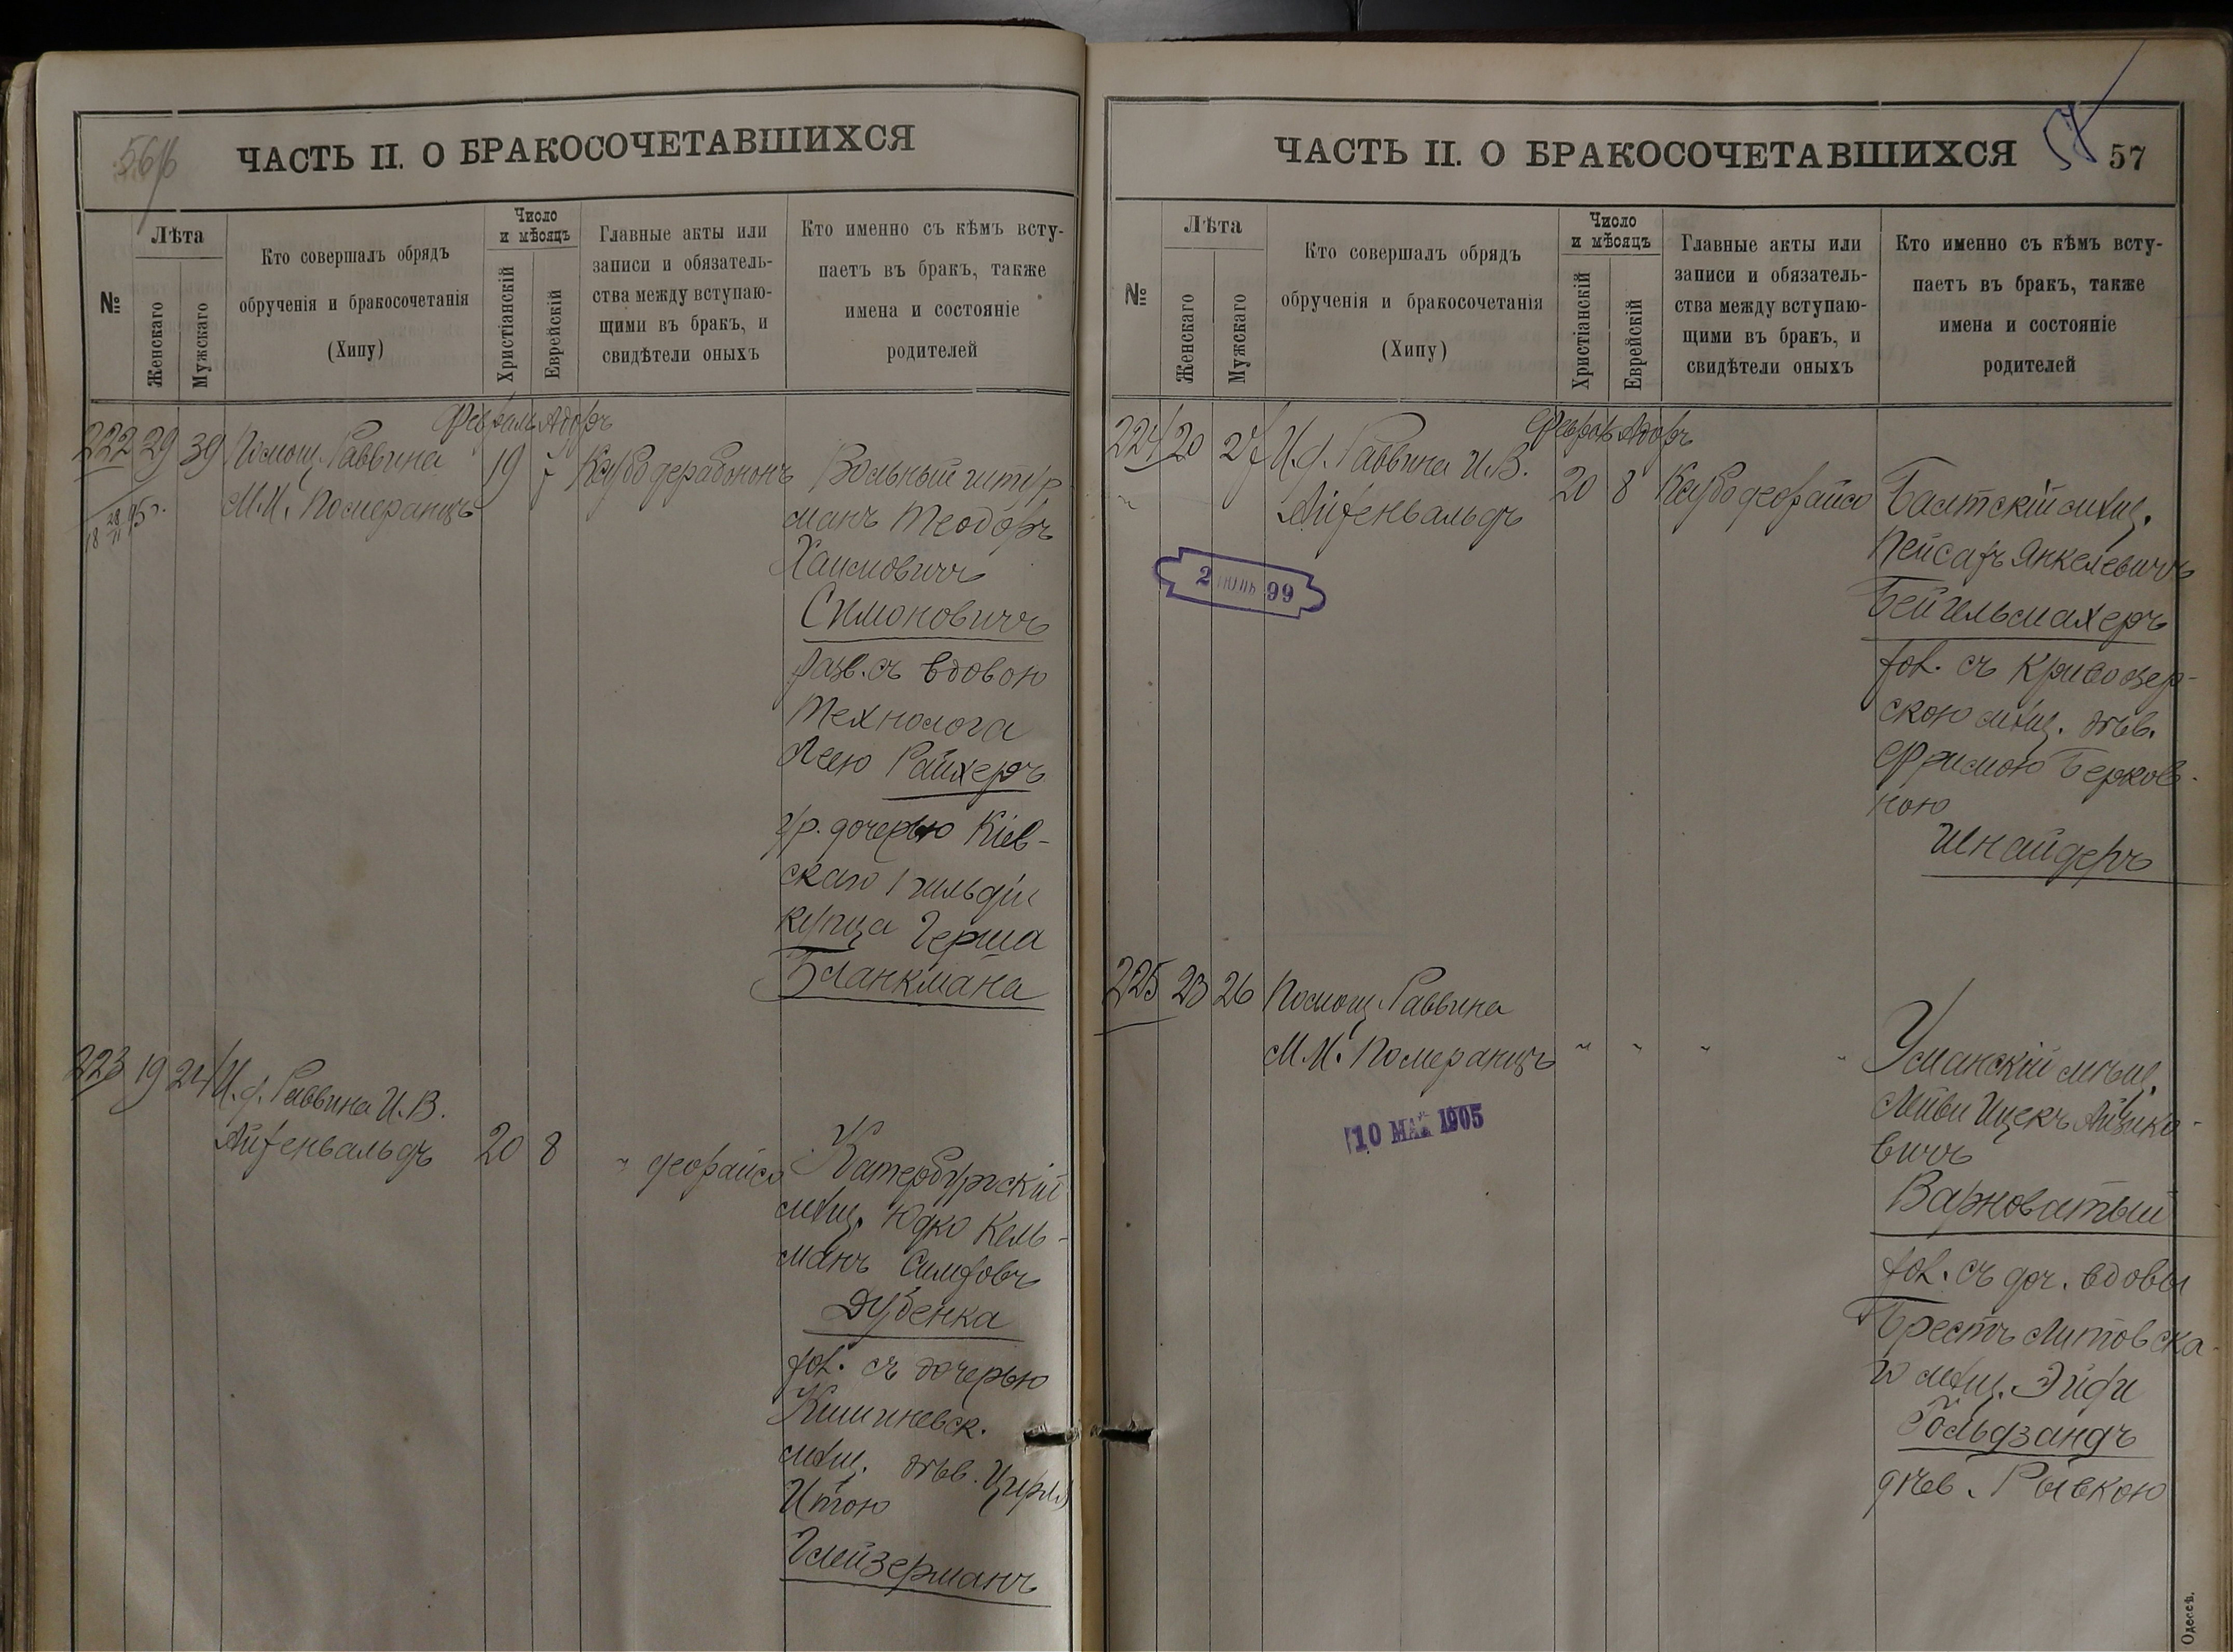 56об
ЧАСТЬ II. О БРАКОСОЧЕТАВШИХСЯ
№
Лѣта
Женскаго
Мужскаго
Кто совершалъ обрядъ
обрученія и бракосочетанія
(Хипу)
Число
и мѣсяцъ
Христіанскій
Еврейскій
Главные акты или
записи и обязатель-
ства между вступаю-
щими въ бракъ, и
свидѣтели оныхъ
Кто именно съ кѣмъ всту-
паетъ въ бракъ, также
имена и состояніе
родителей
Февраль Адоръ
222 29 39 Помощ. Раввина 19 7
М.М. Померанцъ
Вольный штур
манъ Теодоръ
Хаимовичъ
Симоновичъ
разв. съ вдовою
технолога
Леею Райхеръ
ур. дочерью Кіев-
скаго 1 гильдіи
купца Герша
Бланкмана
223 19 24 И.д. Раввина И.В.
Айзенвальдъ 20 8 " деорайсо
Катербургскій
мѣщ. Юдко Кель-
манъ Симховъ
Дубенка
хол. съ дочерью
Кишиневск.
мѣщ. дѣв.
Итою
Глейзерманъ
57
ЧАСТЬ II. О БРАКОСОЧЕТАВШИХСЯ
57
№
Лѣта
Женскаго
Мужскаго
Кто совершалъ обрядъ
обрученія и бракосочетанія
(Хипу)
Число
и мѣсяцъ
Христіанскій
Еврейскій
Главные акты или
записи и обязатель-
ства между вступаю-
щими въ бракъ, и
свидѣтели оныхъ
Кто именно съ кѣмъ всту-
паетъ въ бракъ, также
имена и состояніе
родителей
Адоръ
224 20 27 И.д. Раввина И.В. 20 8 Ксубо деорайсо
Айзенвальдъ
2 99
Балтскій мѣщ.
Пейсахъ Янкелевичъ
Бейгельмахеръ
хол. съ Кривоозер-
скою мѣщ. дѣв.
Фримою Берков-
ною
Шнайдеръ
225 23 26 Помощ. Раввина
М.М. Померанцъ " " " "
10 МАЙ 1905
Уманскій мѣщ.
Лейви Ицекъ Айзико-
вичъ
Варноватый
хол. съ доч. вдовы
Брестъ Литовска-
го мѣщ.
Гольдзандъ
дѣв. Рывкою
Одесса.